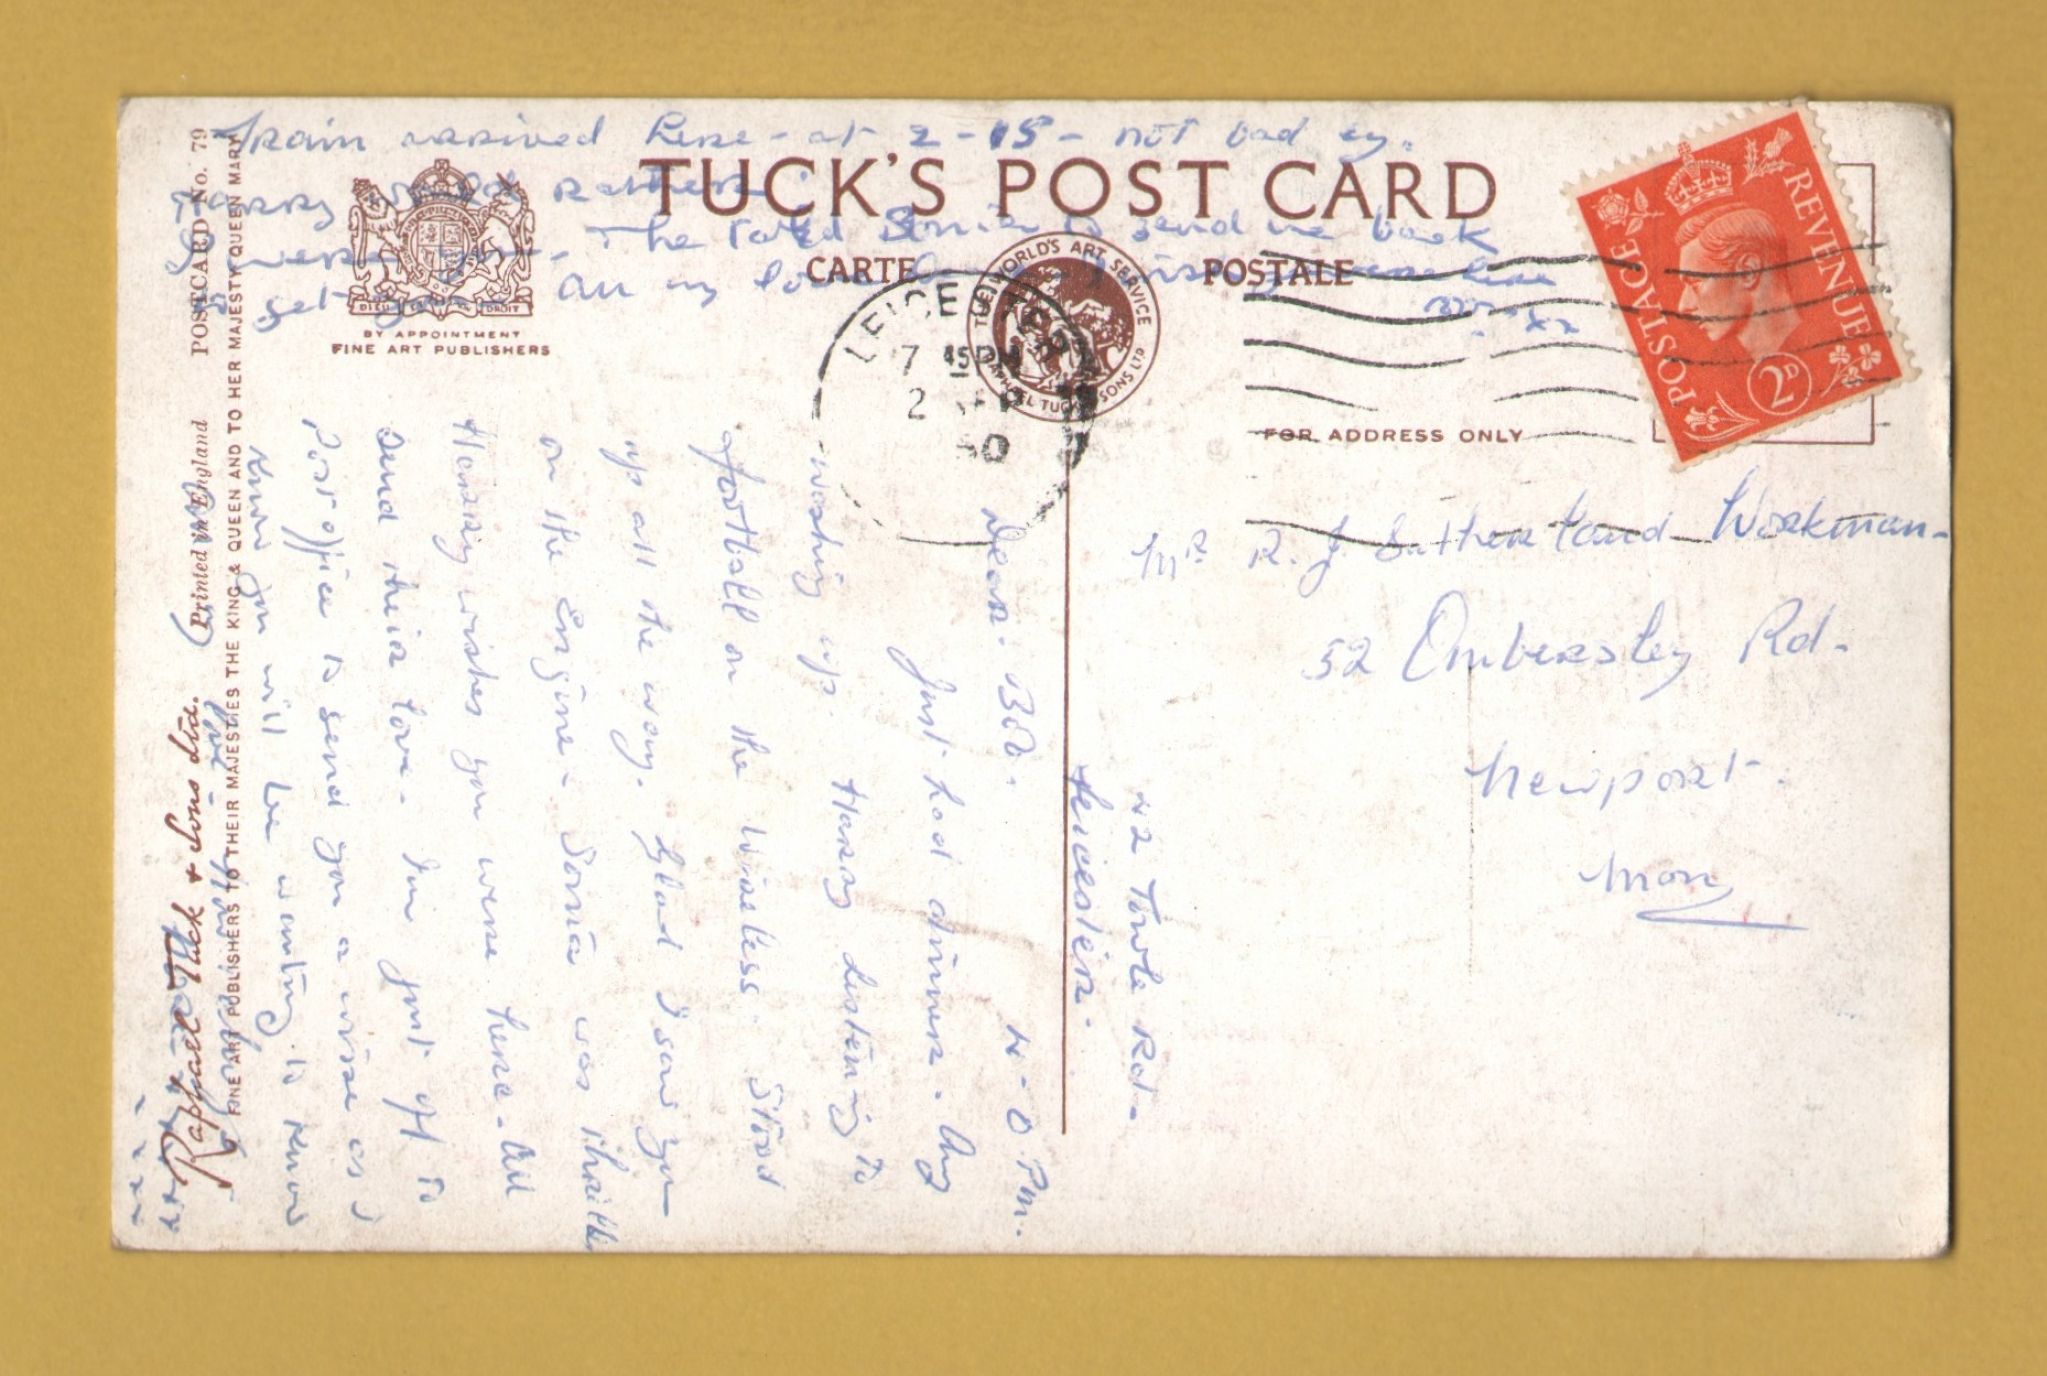 Train arrived here - at 2-15 - not bad eh.
Harry
were The to send me back
get All my love
TUCK'S POST CARD
CARTE POSTALE
THE WORLD'S ART SERVICE
RAPHAEL TUCK & SONS LTD
BY APPOINTMENT
FINE ART PUBLISHERS
DIEU DROIT
LEICESTER
7 45PM
2 SEP
50
POSTAGE REVENUE
2D
FOR ADDRESS ONLY
Mr R. J. Sutherland Workman-
52 Ombersley Rd-
Newport-
Mon
42 Towle Rd-
Leicester.
4-0 Pm.
Dear Bob.
Just had dinner. Avy
washing up. Harry listening to
football on the wireless. Stood
up all the way. Glad I saw you
on the Engine- Sonia was thrilled
Harry wishes you were here- All
send their love- I'm just off to
Post office to send you a wire as I
know you will be wanting to know
POSTCARD No. 79
Printed in England
Raphael Tuck & Sons Ltd.
FINE ART PUBLISHERS TO THEIR MAJESTIES THE KING & QUEEN AND TO HER MAJESTY QUEEN MARY